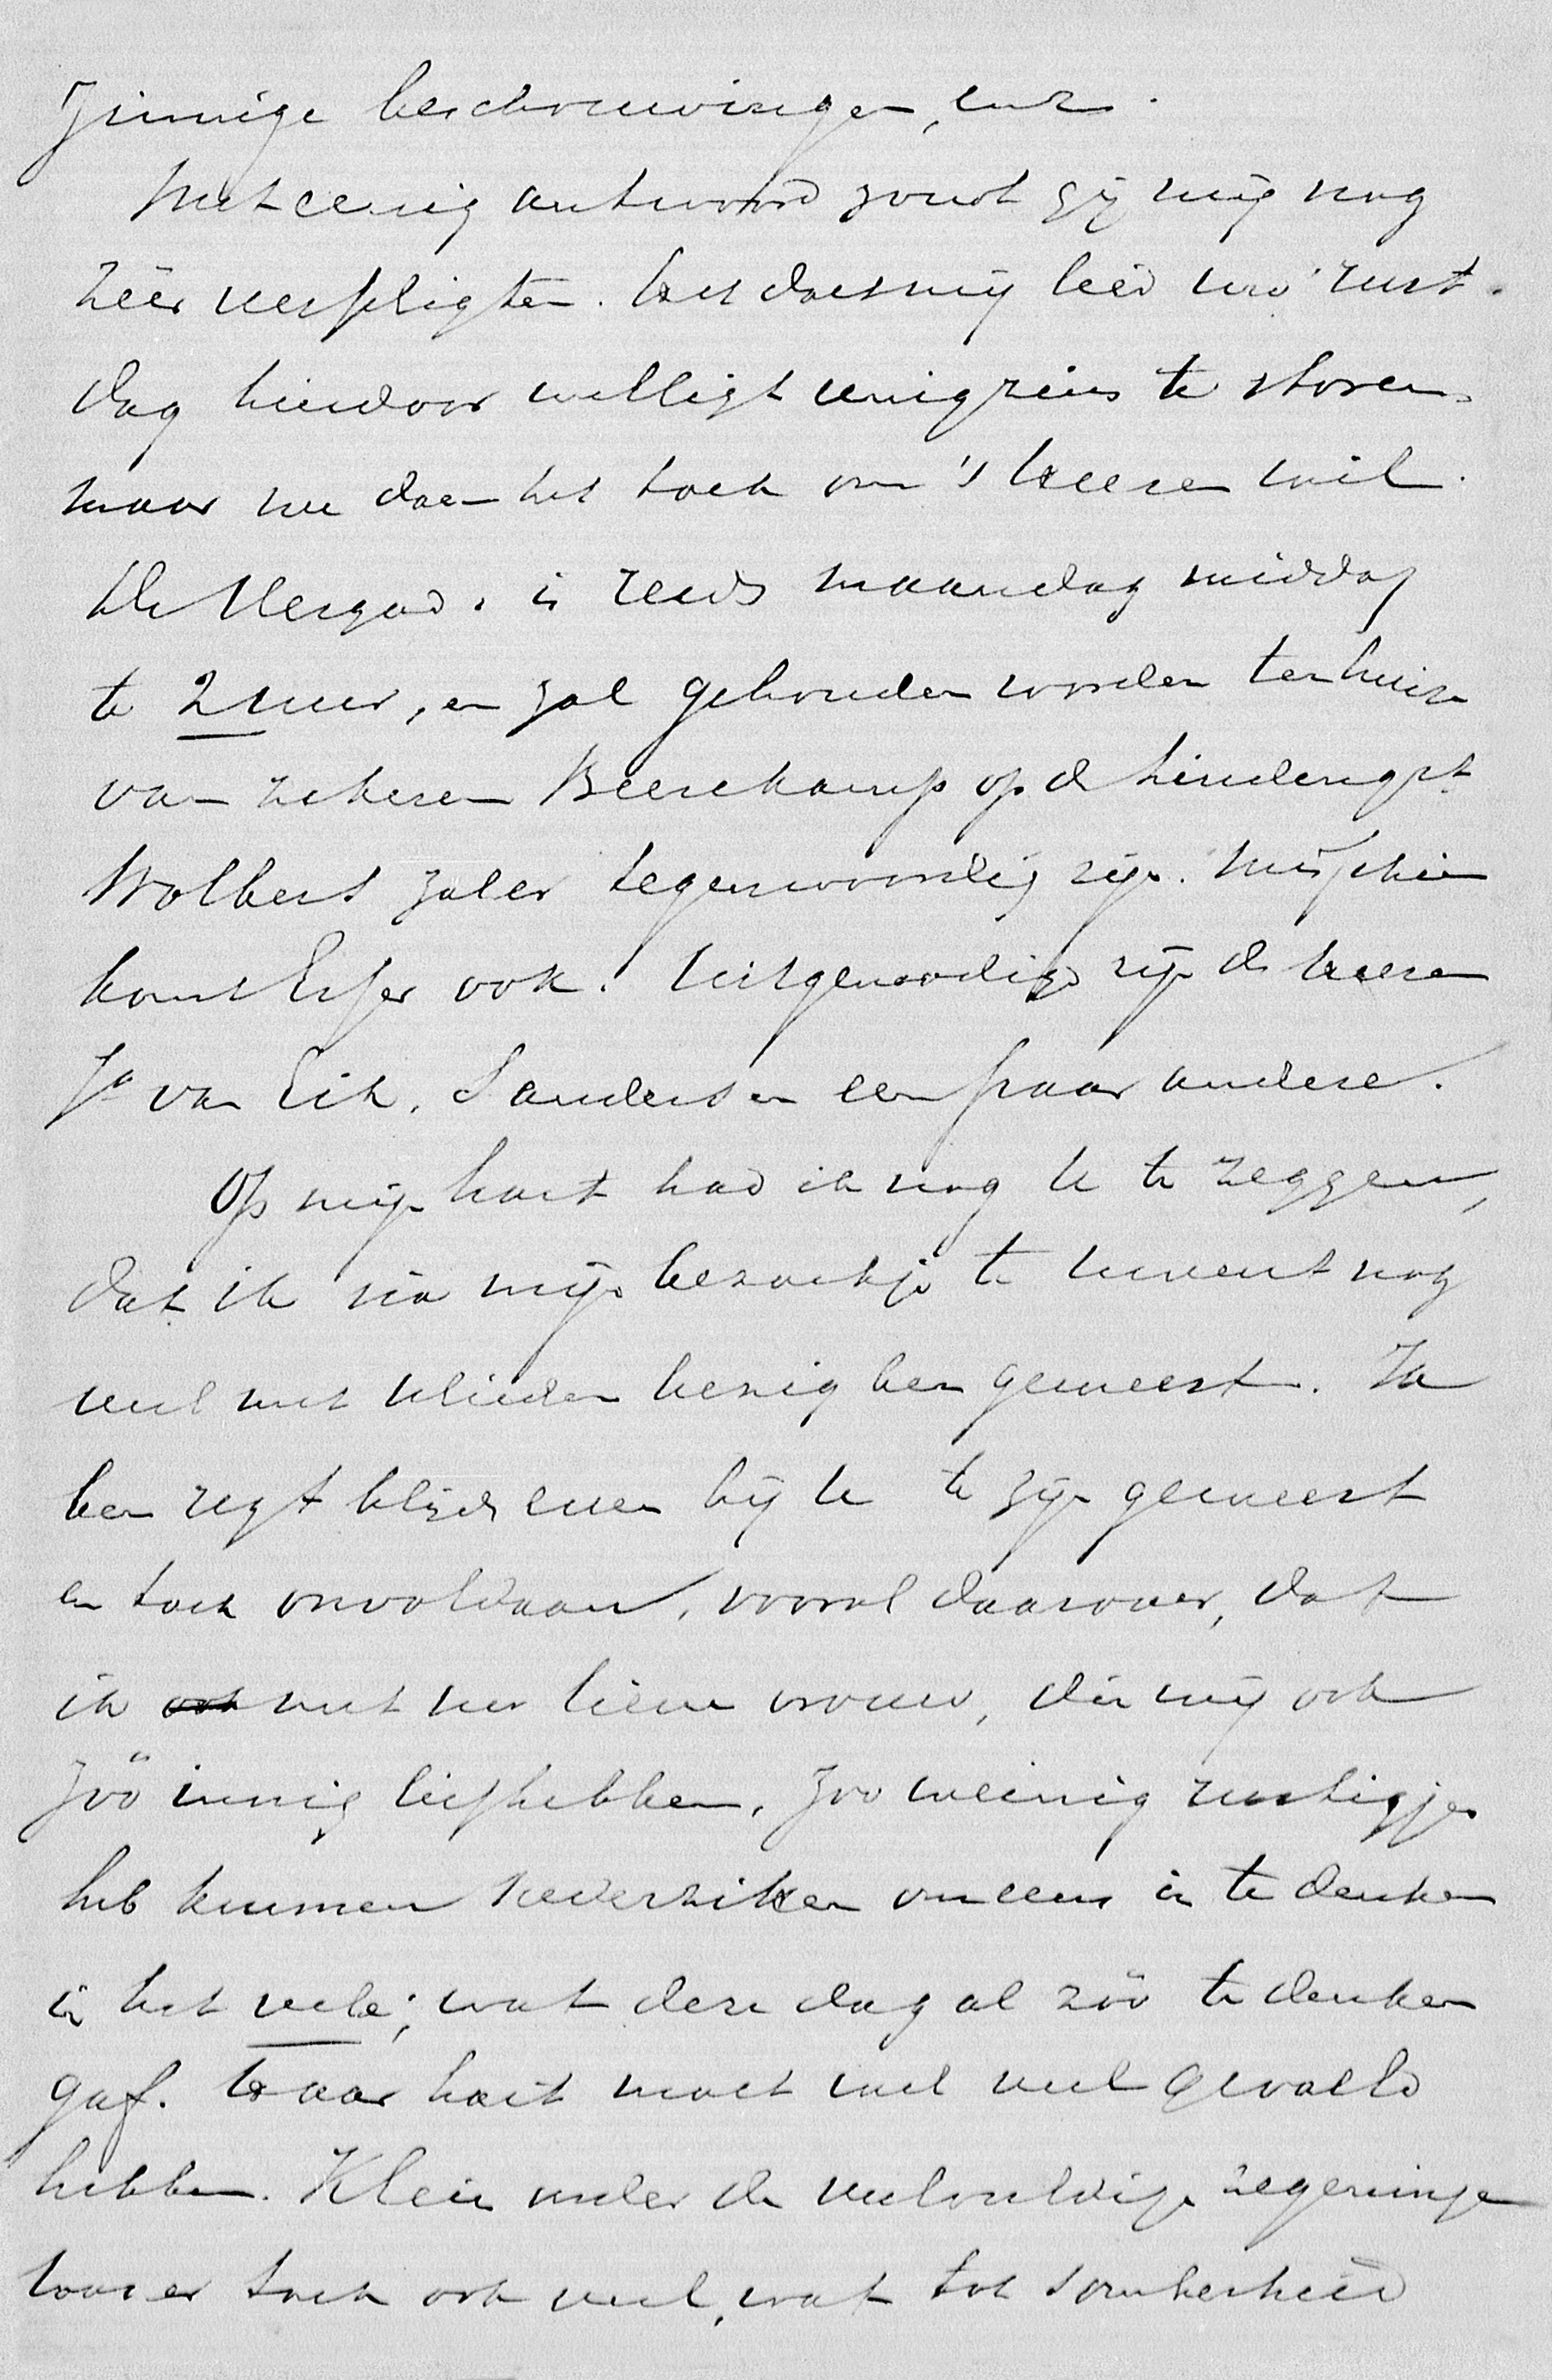 zinnige beschouwingen, enz.
Met eenig antwoord zoudt gij mij nog
zéér verpligten. Het doet mij leed uw rust-
dag hierdoor welligt eenigzins te storen,
maar we doen het toch om 's Heeren wil.
De Vergad. is reeds maandag middag
te 2 uur, en zal gehouden worden ten huize
van zekeren Beerekamp op de Lindengrt
Wolbers zal er tegenwoordig zijn. Misschien
komt Esser ook. Uitgenoodigd zijn de heeren
Js van Eik, Sanders en een paar andere.
Op mijn hart had ik nog U te zeggen,
dat ik ná mijn bezoekje te Uwent nog
veel met Ulieden bezig ben geweest. Ik
ben regt blijde even bij U te zijn geweest
en toch onvoldaan, vooral daarover, dat
ik ook met uw lieve vrouw, die wij ook
zóó innig liefhebben, zoo weinig rustigjes
heb kunnen nederzitten om eens in te denken
in het vele, wat deze dag al zóó te denken
gaf. Haar hart moet wel veel gevoeld
hebben. Klein onder de veelvuldige zegeningen
was er toch ook veel, wat tot somberheid